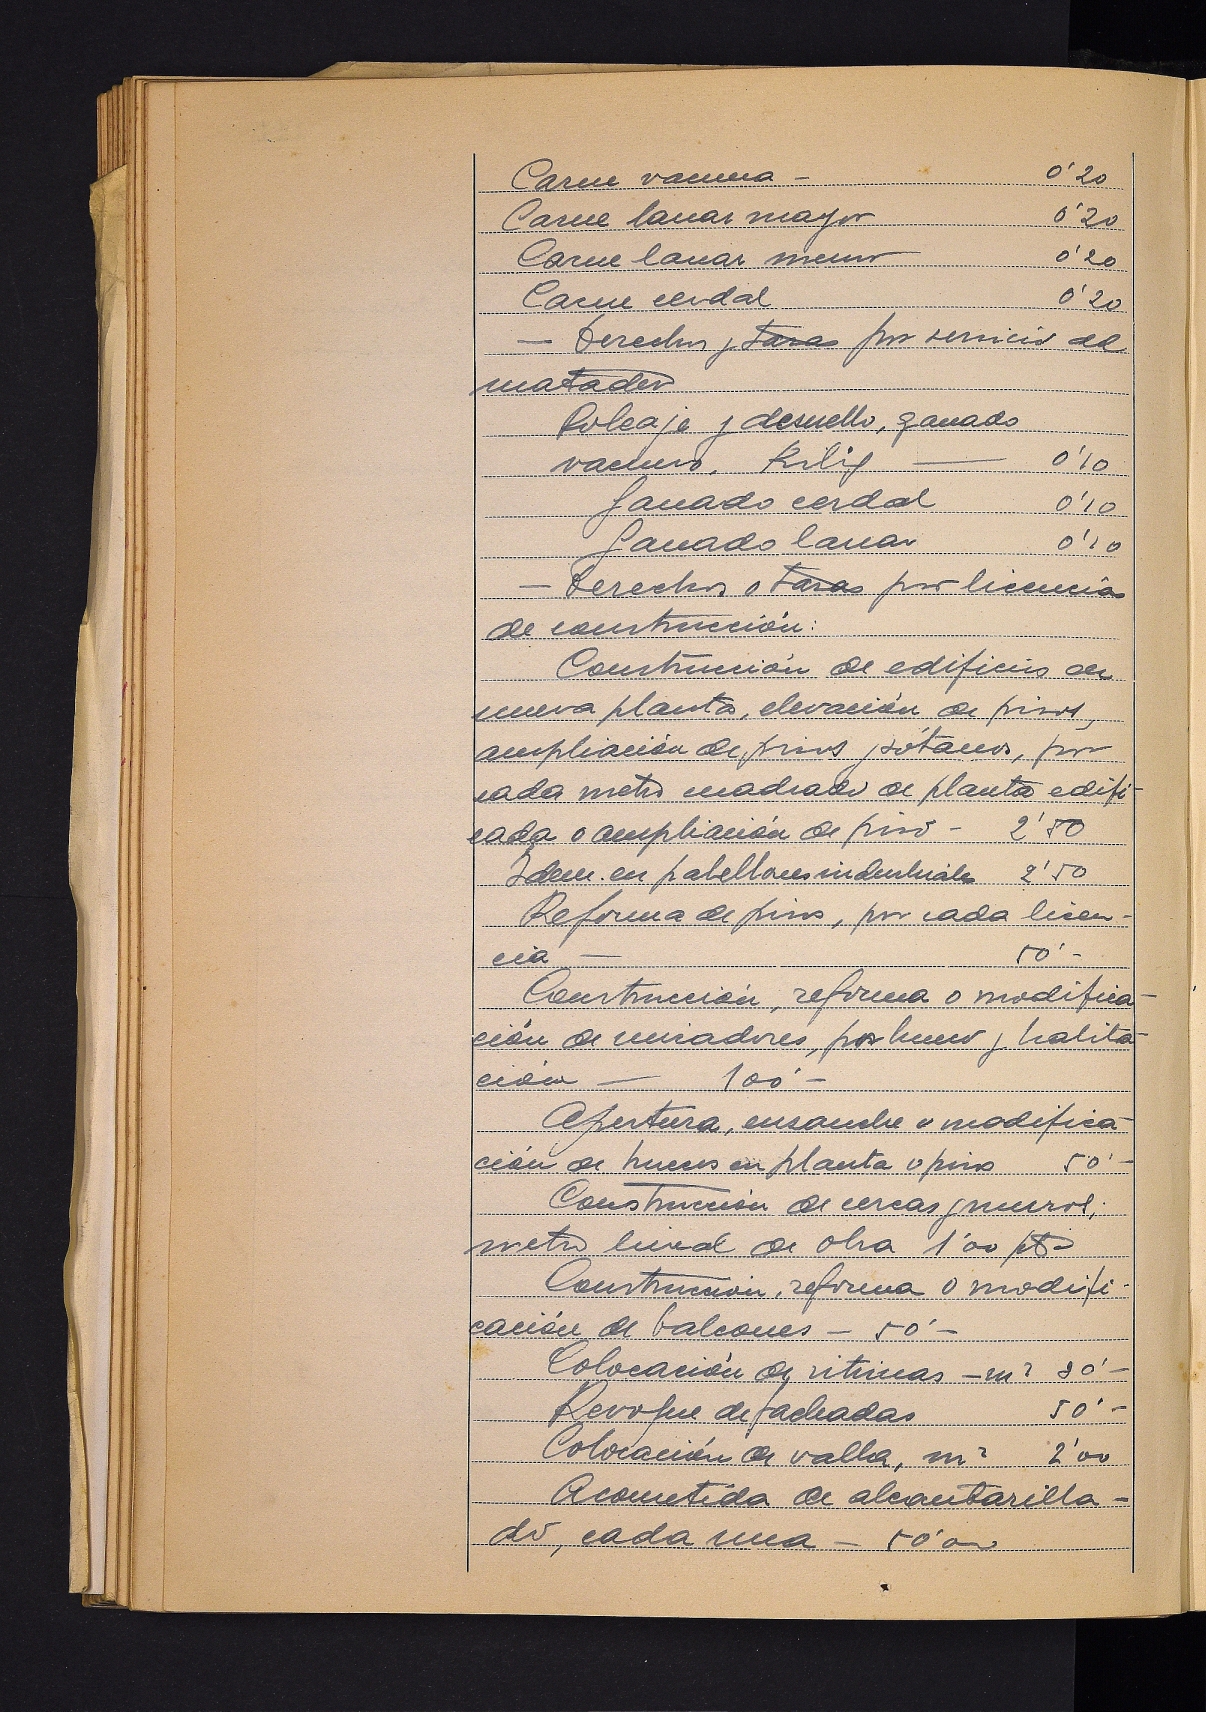 Carne vacuna - 0'20
Carne lanar mayor 0'20
Carne lanar menor 0'20
Carne cerdal 0'20
- Derechos y tasas por servicio del
matadero
Poleaje y desuello, ganado
vacuno. Kilig — 0'10
Ganado cerdal 0'10
Ganado lanar 0'10
- Derechos o tasas por licencias
de construcción:
Construcción de edificios de
nueva planta, elevación de pisos,
ampliación de pisos y sótanos, por
cada metro cuadrado de planta edifi-
cada o ampliación de piso - 2'50
Idem. en pabellones industriales 2'50
Reforma de pisos, por cada licen-
cia — 50'-
Construcción, reforma o modifica-
ción de miradores, por hueco y habita-
ción — 100'-
Apertura, ensanche o modifica-
ción de huecos en planta o piso 50'-
Construcción de cercas y muros,
metro lineal de obra 1'00 pts
Construcción, reforma o modifi-
cación de balcones - 50'-
Colocación de vitrinas - m² 80'-
Revoque de fachadas 50'-
Colocación de valla, m² 2'00
Acometida de alcantarilla-
do, cada una - 50'00